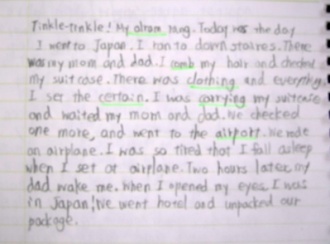 Tinkle-tinkle! My alram rang. Today was the day
I went to Japan. I ran to down staires. There
was my mom and dad. I comb my hair and checked
my suit case. There was clothing and everything.
I set the certain. I was carrying my suitcase
and waited my mom and dad. We checked
one more, and went to the airport. We rode
an airplane. I was so tired that I fall asleep
when I set at airplane. Two hours later, my
dad wake me. When I opened my eyes, I was
in Japan! We went hotel and unpacked our
package.